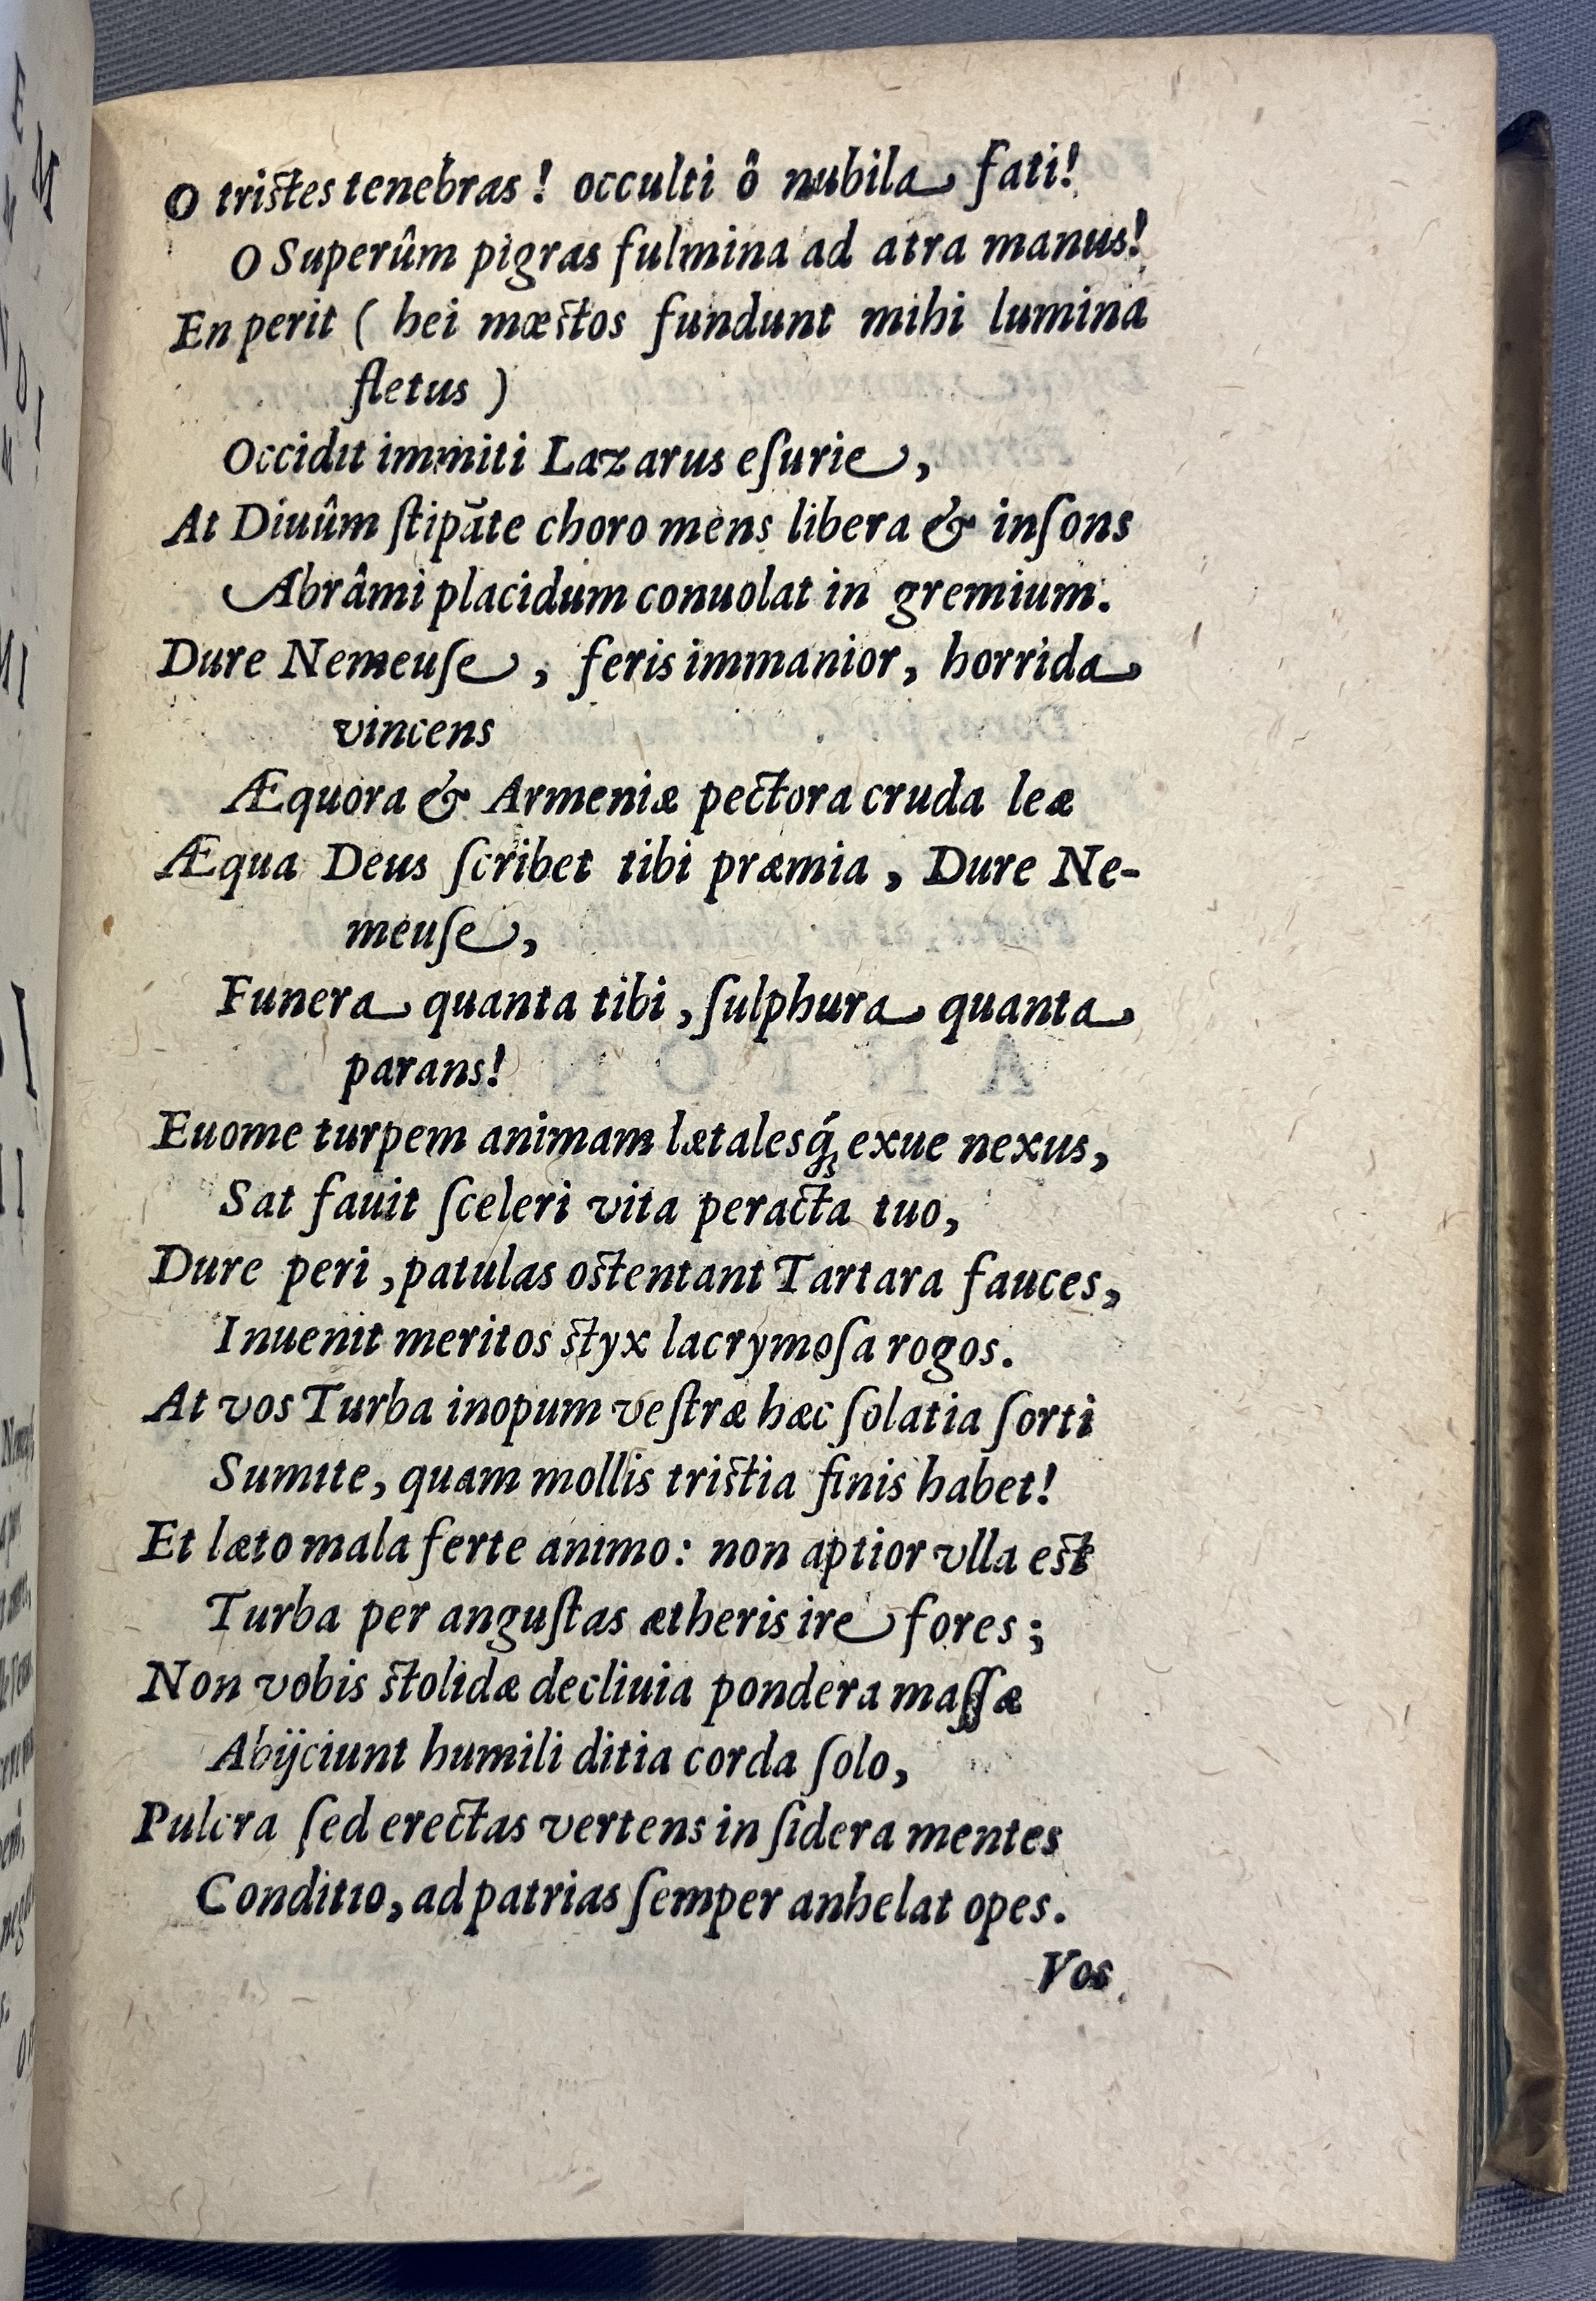 O tristes tenebras! occulti ô nubila fati!
O Superûm pigras fulmina ad atra manus!
En perit ( hei mœstos fundunt mihi lumina
fletus )
Occidit immiti Lazarus eſurie,
At Diuûm ſtipāte choro mens libera & inſons
Abrâmi placidum conuolat in gremium.
Dure Nemeuſe, feris immanior, horrida
vincens
Æquora & Armeniæ pectora cruda leæ
Æqua Deus ſcribet tibi præmia, Dure Ne-
meuſe,
Funera quanta tibi, ſulphura quanta
parans!
Euome turpem animam lætalesq́ꝫ exue nexus,
Sat fauit ſceleri vita peracta tuo,
Dure peri, patulas ostentant Tartara fauces,
Inuenit meritos styx lacrymoſa rogos.
At vos Turba inopum veſtræ hæc ſolatia ſorti
Sumite, quam mollis tristia finis habet!
Et læto mala ferte animo: non aptior vlla est
Turba per anguſtas ætheris ire fores;
Non vobis stolidæ decliuia pondera maſſæ
Abijciunt humili ditia corda ſolo,
Pulcra ſed erectas vertens in ſidera mentes
Conditio, ad patrias ſemper anhelat opes.
Vos